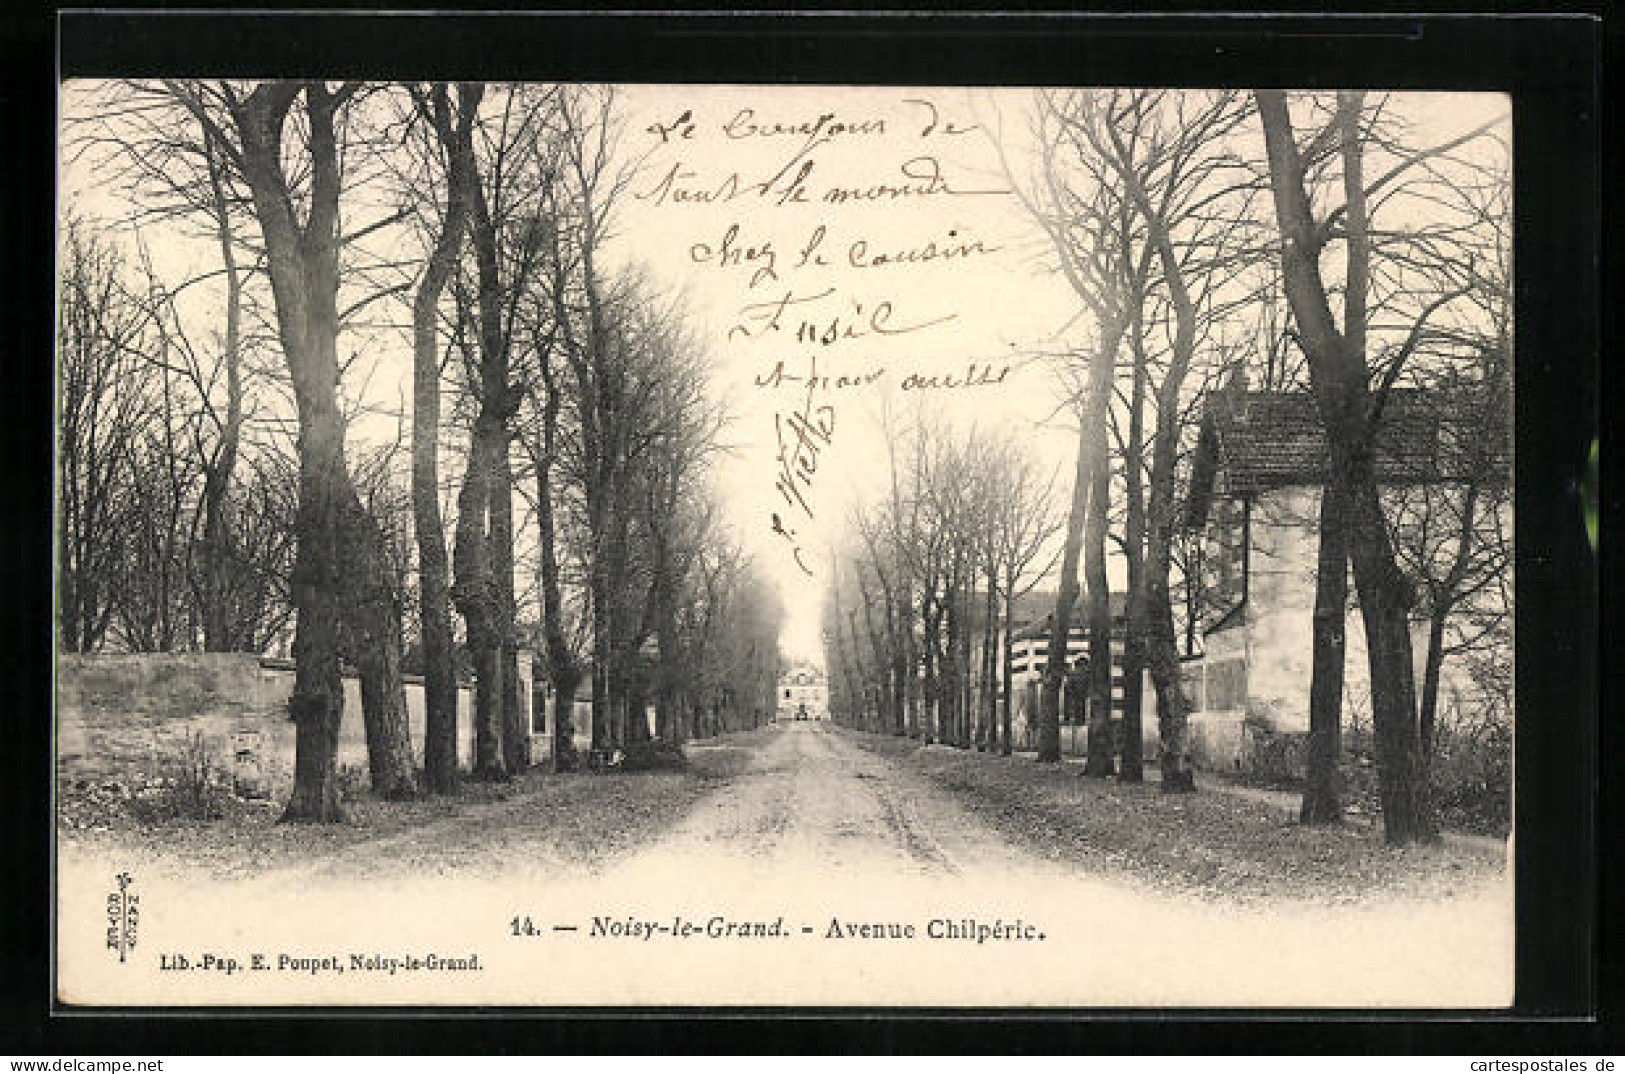 Le bonjour de
tout le monde
chez le cousin
Fusil
et pour aussi
J. Viette
ROYER
NANCY
14. — Noisy-le-Grand. - Avenue Chilpéric.
Lib.-Pap. E. Poupet, Noisy-le-Grand.
cartespostales de